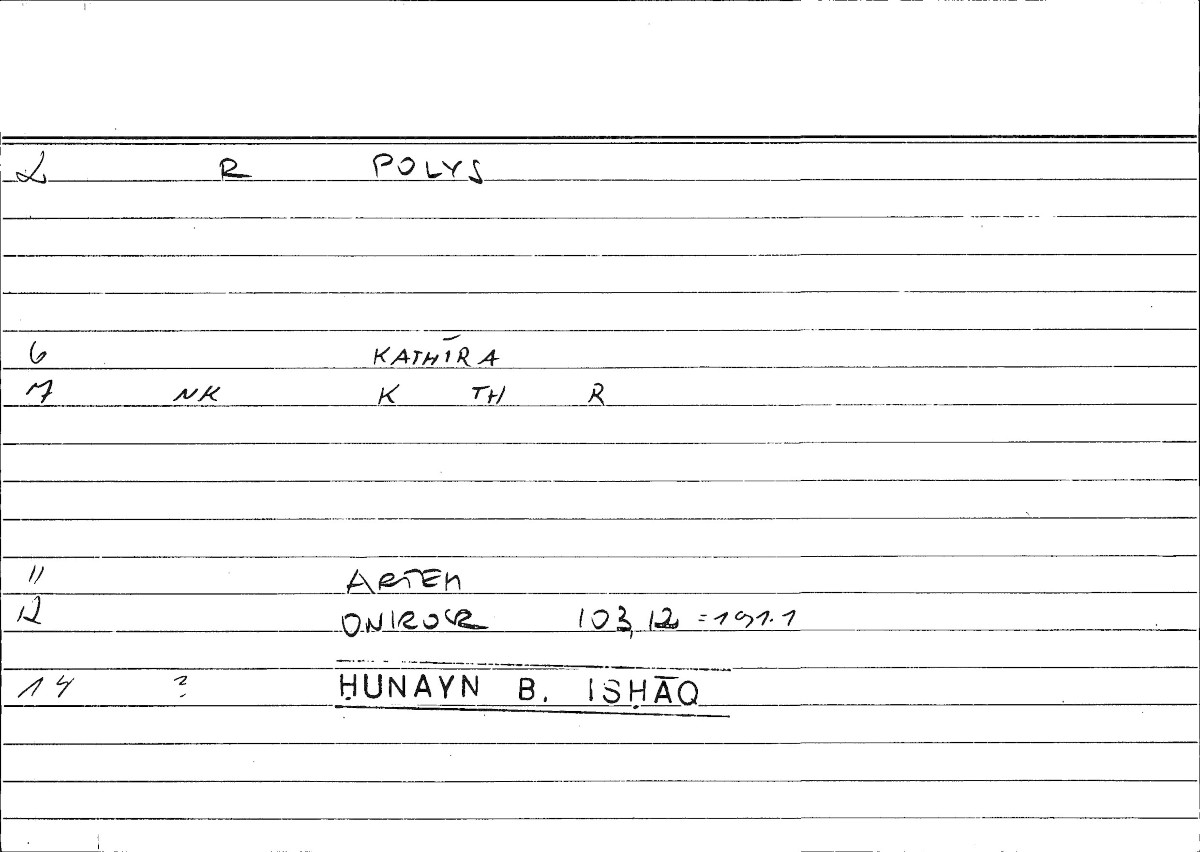 2 R POLYS
6 KATHĪRA
7 NK K TH R
11 ARTEM
12 ONIROCR 103,12 = 191.1
14 ? ḤUNAYN B. ISḤĀQ